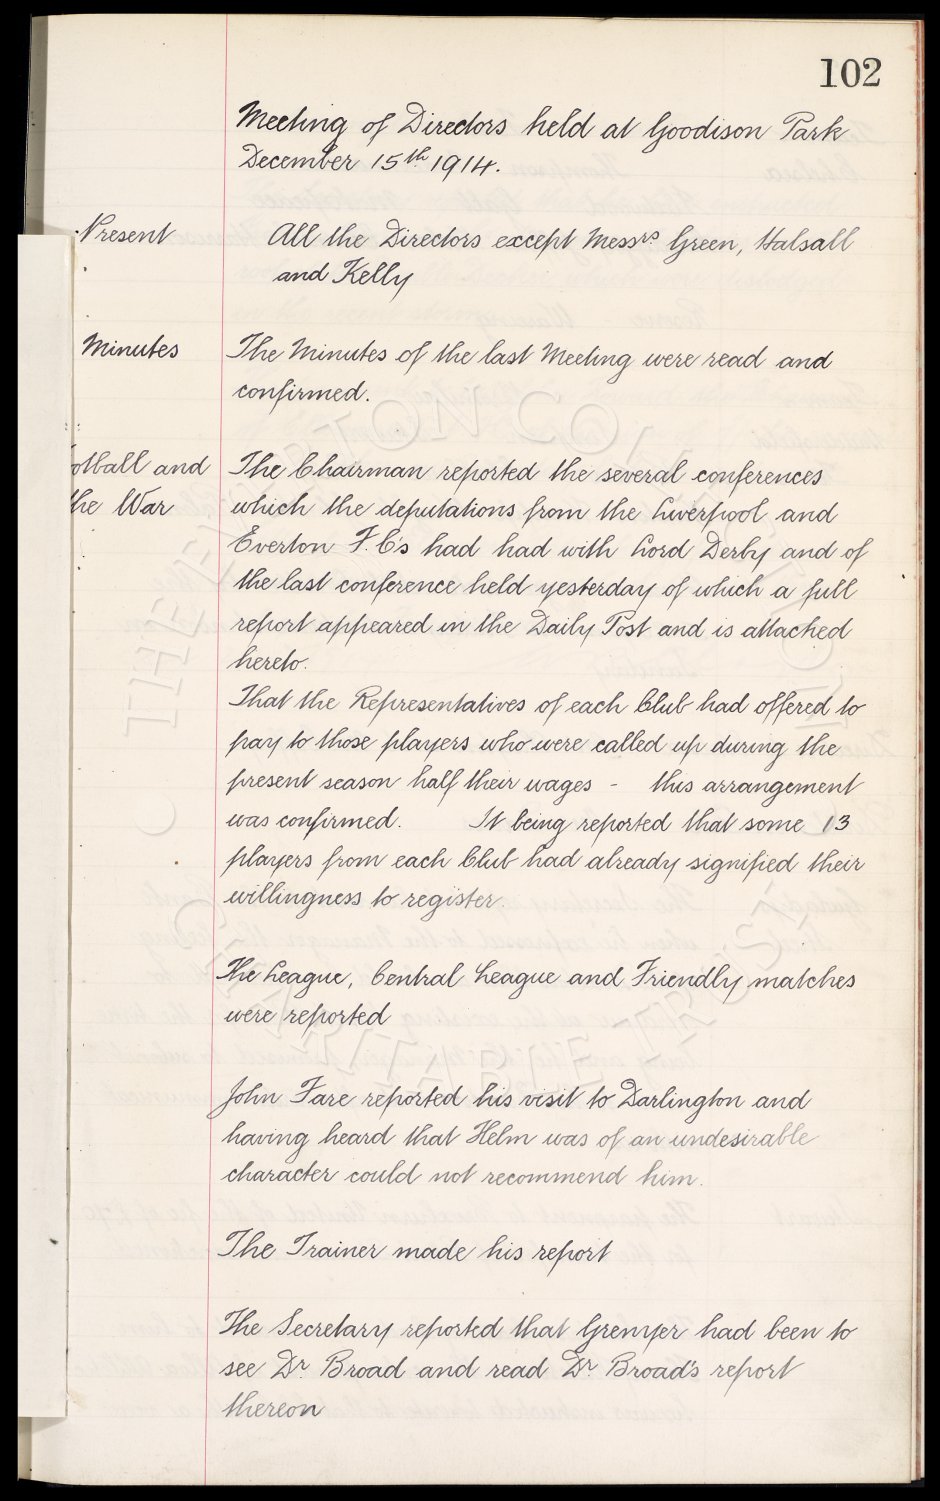 102
Meeting of Directors held at Goodison Park
December 15th 1914.
Present
All the Directors except Messrs Green, Halsall
and Kelly
Minutes
The Minutes of the last Meeting were read and
confirmed.
otball and
the War
The Chairman reported the several conferences
which the deputations from the Liverpool and
Everton F.C's had had with Lord Derby and of
the last conference held yesterday of which a full
report appeared in the Daily Post and is attached
hereto.
That the Representatives of each Club had offered to
pay to those players who were called up during the
present season half their wages - this arrangement
was confirmed. It being reported that some 13
players from each Club had already signified their
willingness to register.
The League, Central League and Friendly matches
were reported
John Fare reported his visit to Darlington and
having heard that Helm was of an undesirable
character could not recommend him.
The Trainer made his report
The Secretary reported that Grenyer had been to
see Dr. Broad and read Dr. Broad's report
thereon
© THE EVERTON COLLECTION
CHARITABLE TRUST